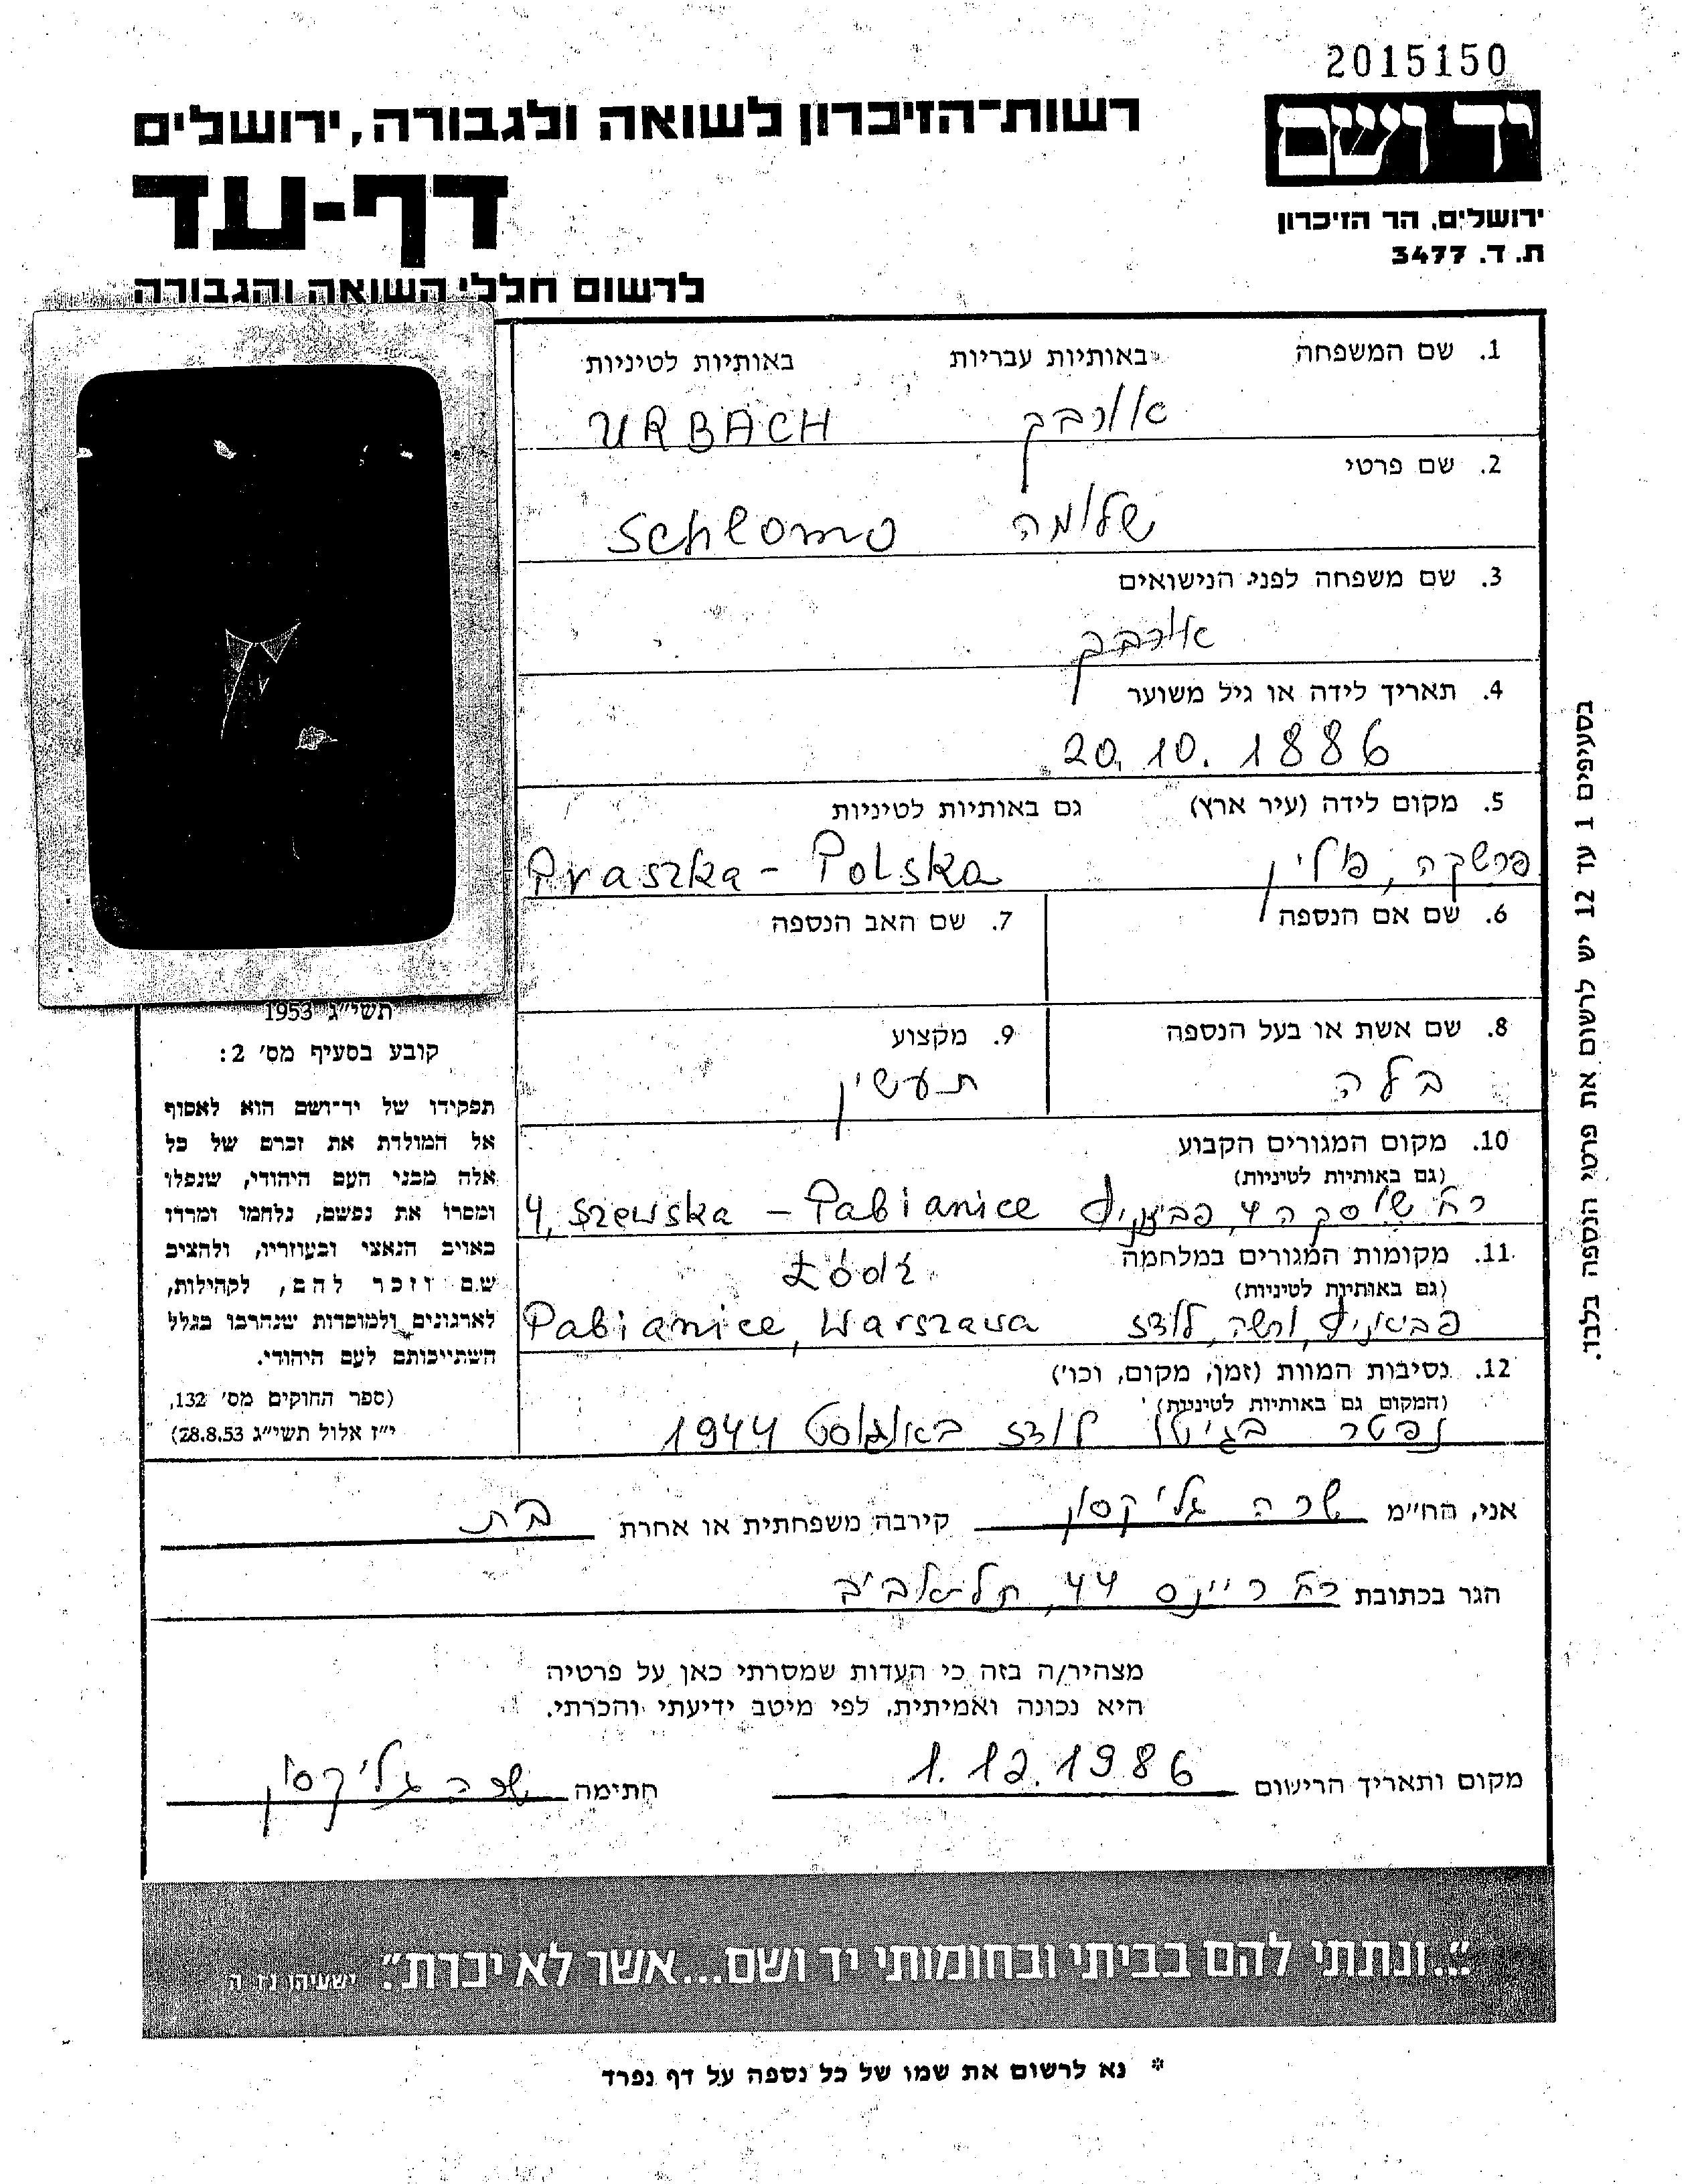 2015150
יד ושם
רשות־הזיכרון לשואה ולגבורה, ירושלים
דף-עד
ירושלים, הר הזיכרון
ת. ד. 3477
לרשום חללי השואה והגבורה
1. שם המשפחה באותיות עבריות באותיות לטיניות
אורבך URBACH
2. שם פרטי
שלומה Schlomo
3. שם משפחה לפני הנישואים
אורבך
4. תאריך לידה או גיל משוער
20.10.1886
5. מקום לידה (עיר ארץ) גם באותיות לטיניות
פרשקה, פולין Praszka - Polska
6. שם אם הנספה 7. שם האב הנספה
8. שם אשת או בעל הנספה 9. מקצוע
בלה תעשין
10. מקום המגורים הקבוע
(גם באותיות לטיניות)
רח' שוסקה 4, פביאניץ 4, Szewska - Pabianice
11. מקומות המגורים במלחמה
(גם באותיות לטיניות)
Łódź
פביאניץ, ורשה, לודז Pabianice, Warszawa
12. נסיבות המוות (זמן, מקום, וכו')
(המקום גם באותיות לטיניות)
נפטר בגיטו לודז באוגוסט 1944
תשי"ג 1953
קובע בסעיף מס' 2:
תפקידו של יד־ושם הוא לאסוף
אל המולדת את זכרם של כל
אלה מבני העם היהודי, שנפלו
ומסרו את נפשם, נלחמו ומרדו
באויב הנאצי ובעוזריו, ולהציב
שם וזכר להם, לקהילות,
לארגונים ולמוסדות שנחרבו בגלל
השתייכותם לעם היהודי.
(ספר החוקים מס' 132,
י"ז אלול תשי"ג 28.8.53)
בסעיפים 1 עד 12 יש לרשום את פרטי הנספה בלבד.
אני, הח"מ שרה גליקסון קירבה משפחתית או אחרת בת
הגר בכתובת רח' ריינס 44, תל-אביב
מצהיר/ה בזה כי העדות שמסרתי כאן על פרטיה
היא נכונה ואמיתית, לפי מיטב ידיעתי והכרתי.
מקום ותאריך הרישום 1.12.1986 חתימה שרה גליקסון
"...ונתתי להם בביתי ובחומותי יד ושם...אשר לא יכרת". ישעיהו נו ה
* נא לרשום את שמו של כל נספה על דף נפרד